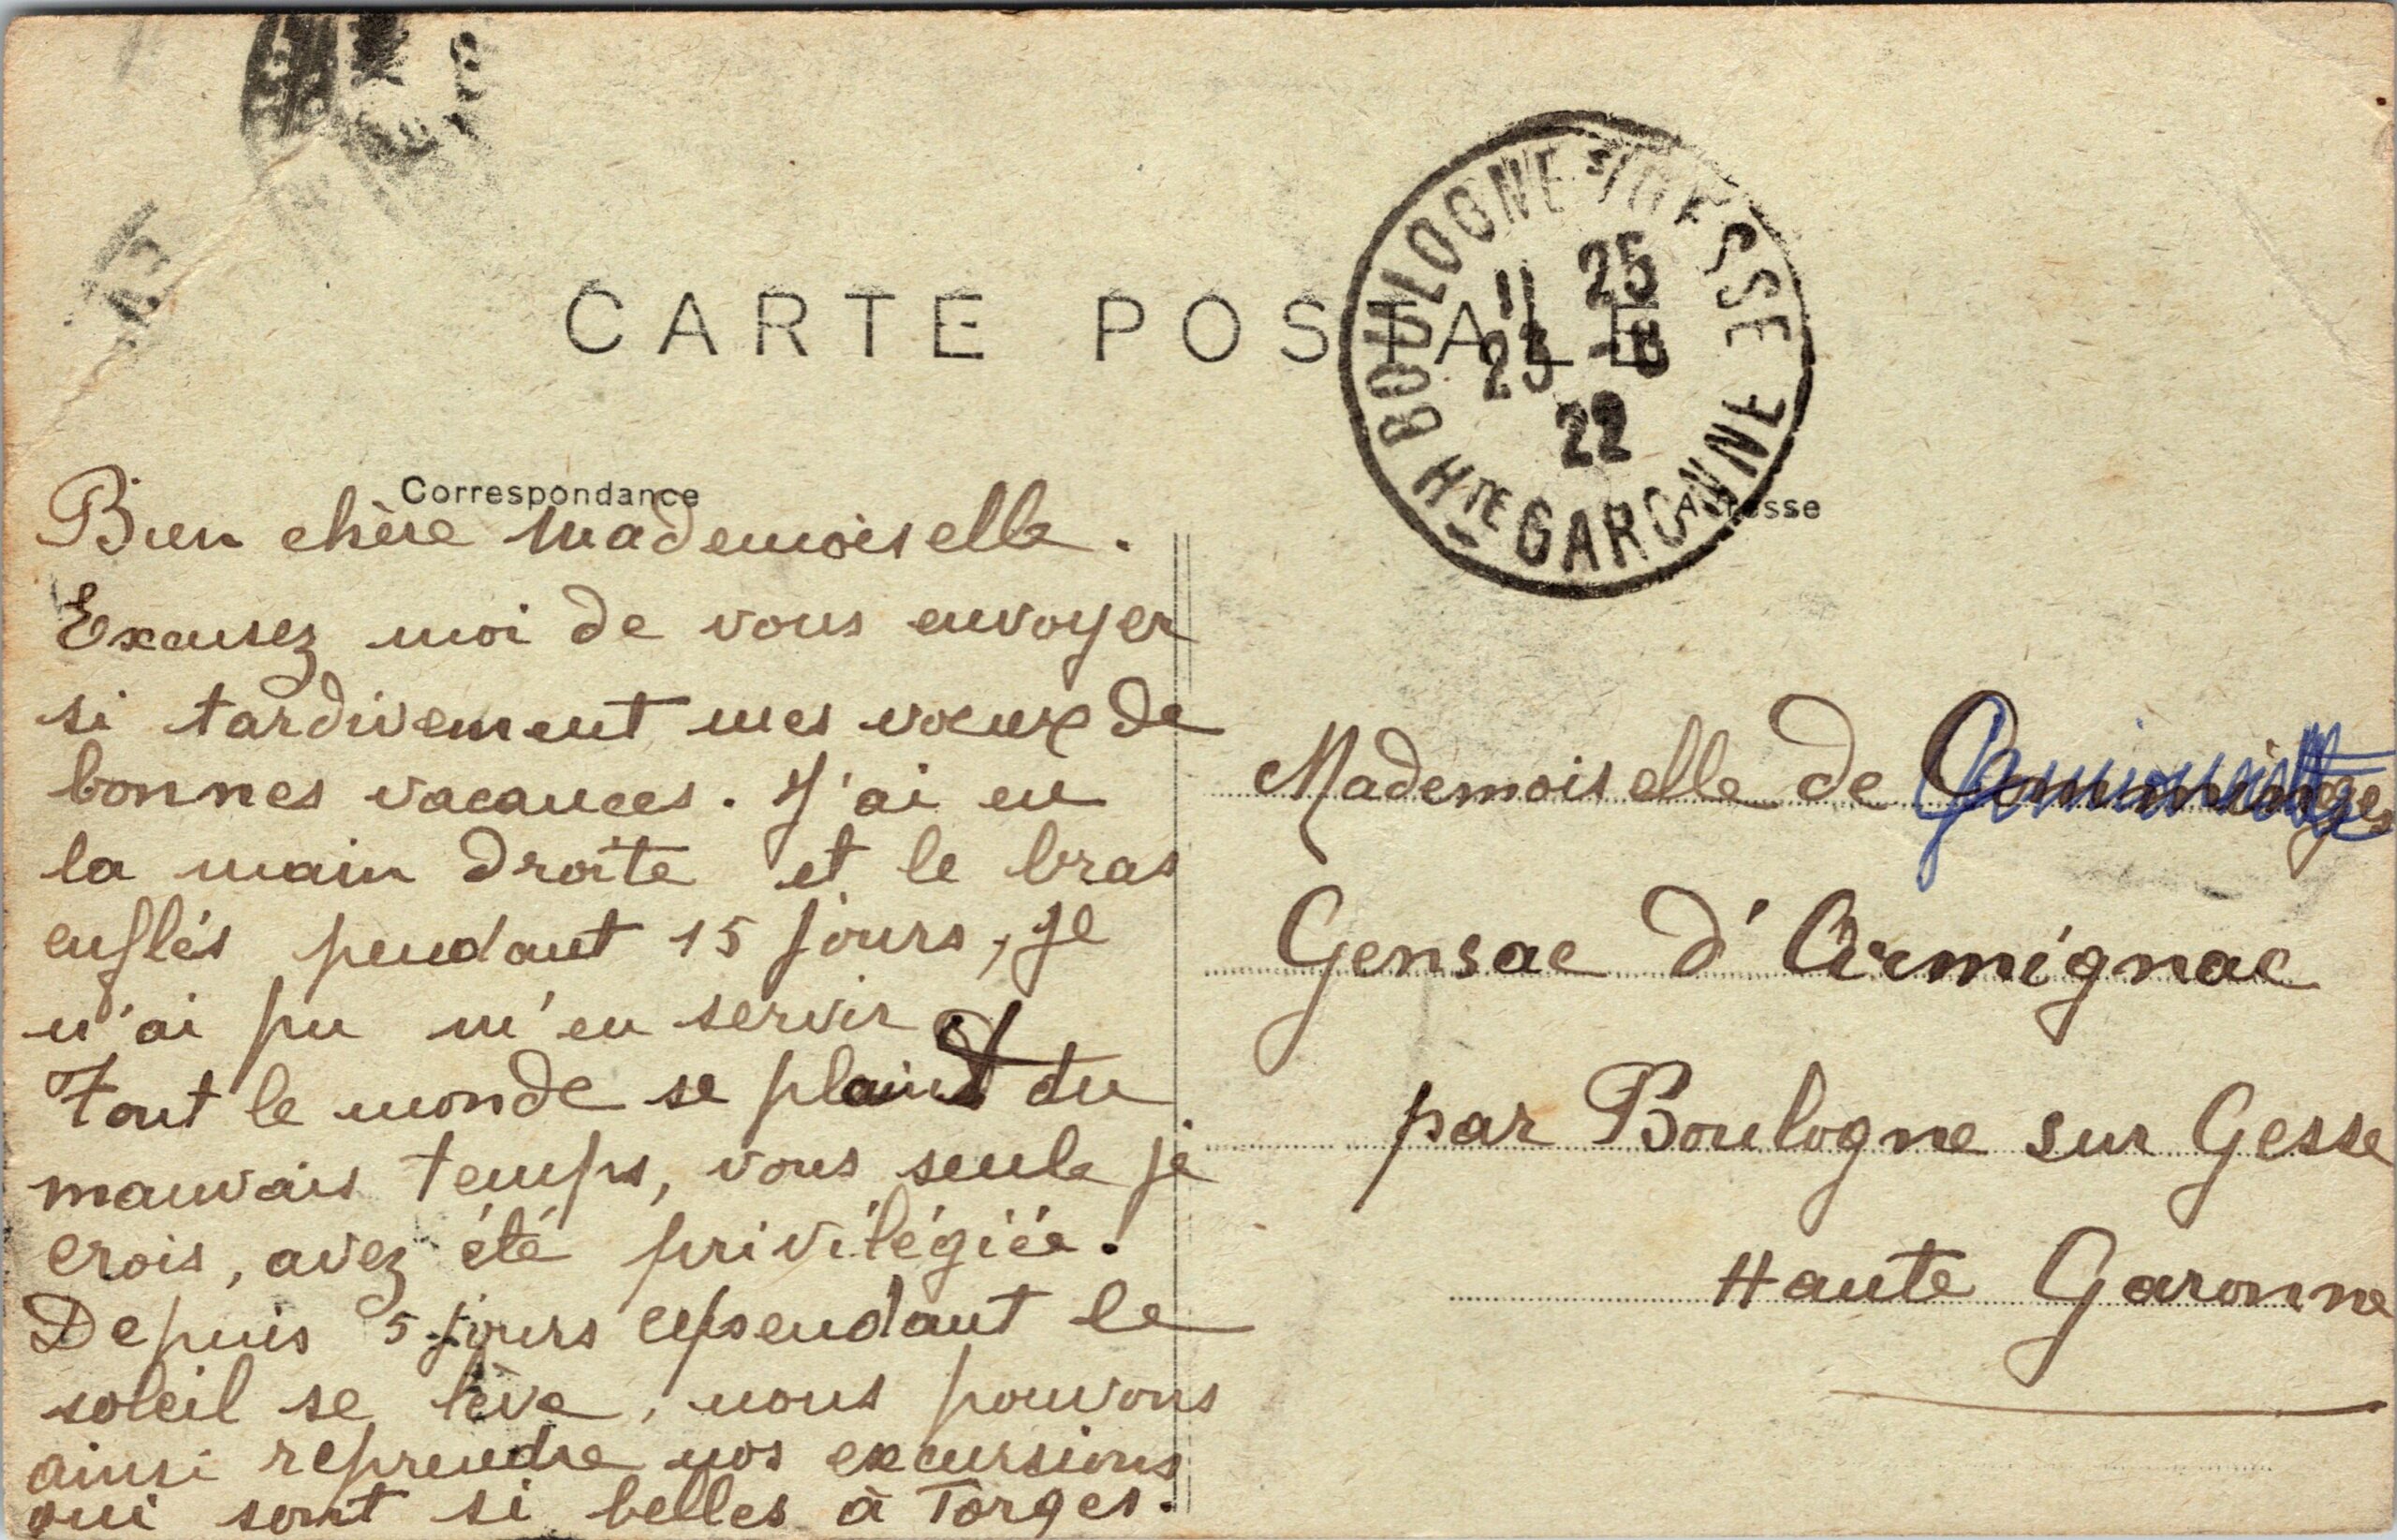 CARTE POSTALE
BOULOGNE S/ GESSE
11 25
23 -8
22
HTE GARONNE
Correspondance
Adresse
Bien chère Mademoiselle.
Excusez moi de vous envoyer
si tardivement mes voeux de
bonnes vacances. J'ai eu
la main droite et le bras
enflés pendant 15 jours, je
n'ai pu m'en servir
Tout le monde se plaint du
mauvais temps, vous seule je
crois, avez été privilégiée.
Depuis 5 jours cependant le
soleil se lève, nous pouvons
ainsi reprendre nos excursions
qui sont si belles à Torges.
Mademoiselle de
Gensac d'Armignac
par Boulogne sur Gesse
Haute Garonne